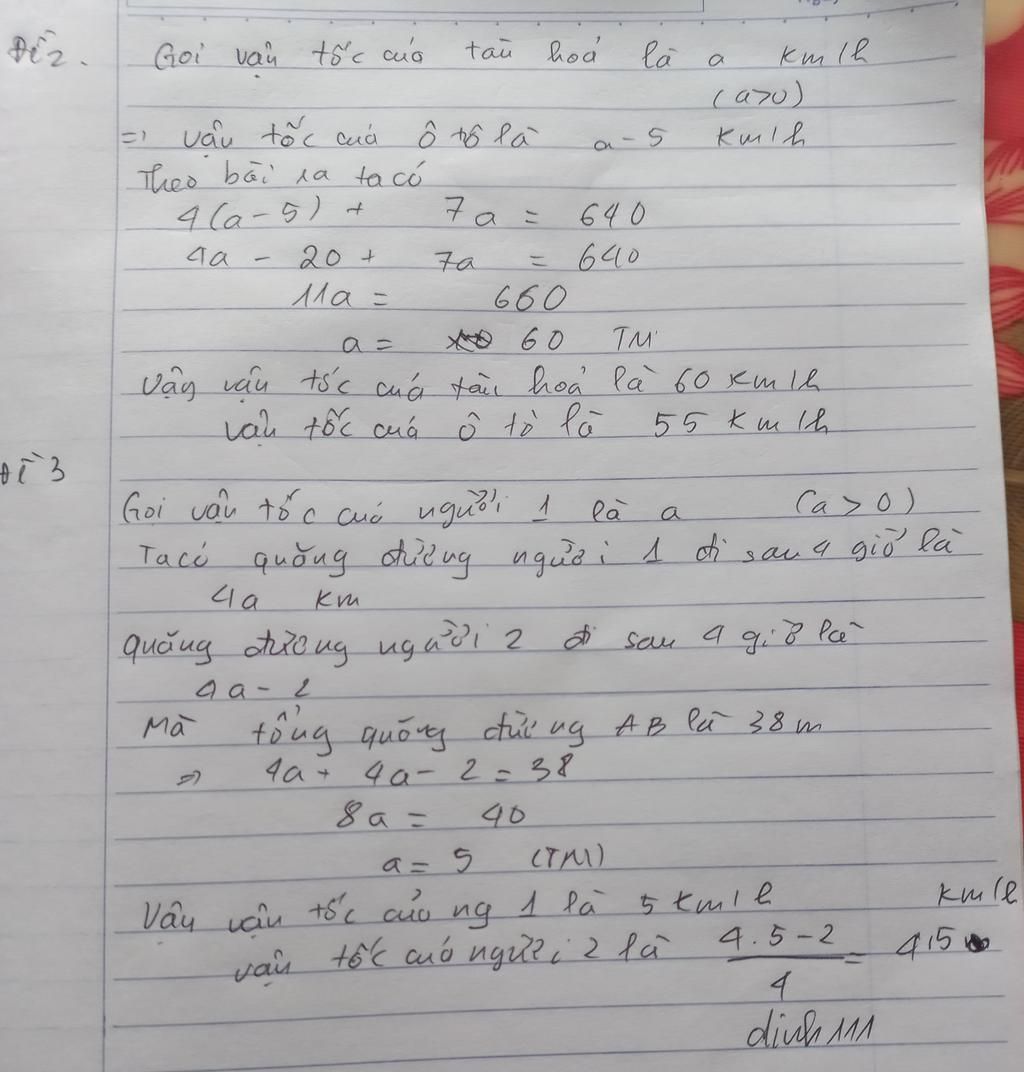 Đề 2. Gọi vận tốc của tàu hoả là a km/h
(a>0)
=> vận tốc của ô tô là a - 5 km/h
Theo bài ra ta có
4(a - 5) + 7a = 640
4a - 20 + 7a = 640
11a = 660
a = 60 TM
Vậy vận tốc của tàu hoả là 60 km/h
vận tốc của ô tô là 55 km/h
Đề 3
Gọi vận tốc của người 1 là a (a > 0)
Ta có quãng đường người 1 đi sau 4 giờ là
4a km
quãng đường người 2 đi sau 4 giờ là
4a - 2
Mà tổng quãng đường AB là 38m
=> 4a + 4a - 2 = 38
8a = 40
a = 5 (TM)
Vậy vận tốc của ng 1 là 5 km/h
vận tốc của người 2 là 4.5-2/4 = 4,5 km/h
dinh111